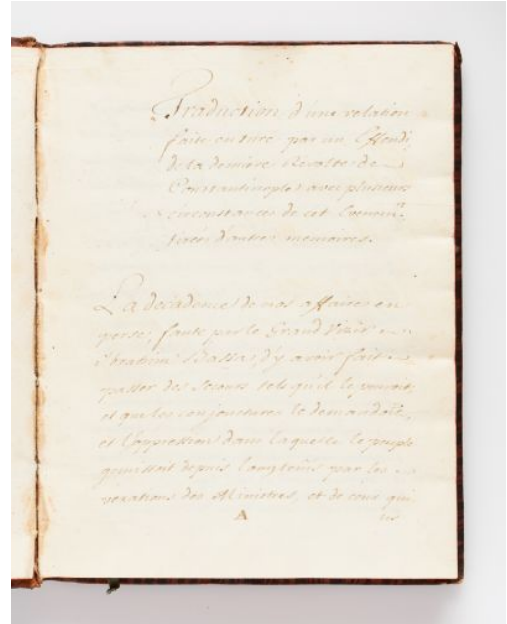 Traduction d'une relation
faite en turc par un Effendi
de la derniere Revolte de
Constantinople avec plusieurs
circonstances de cet Evenem.nt
tirées d'autres memoires.
La décadence de nos affaires en
perse, faute par le Grand Vizir
Ibrahim Bassa, d'y avoir fait
passer des secours tels qu'il le pouvoit,
et que les conjonctures le demandoit,
et l'oppression dans laquelle le peuple
gemissoit depuis longtems par les
vexations des Ministres, et de ceux qui
A